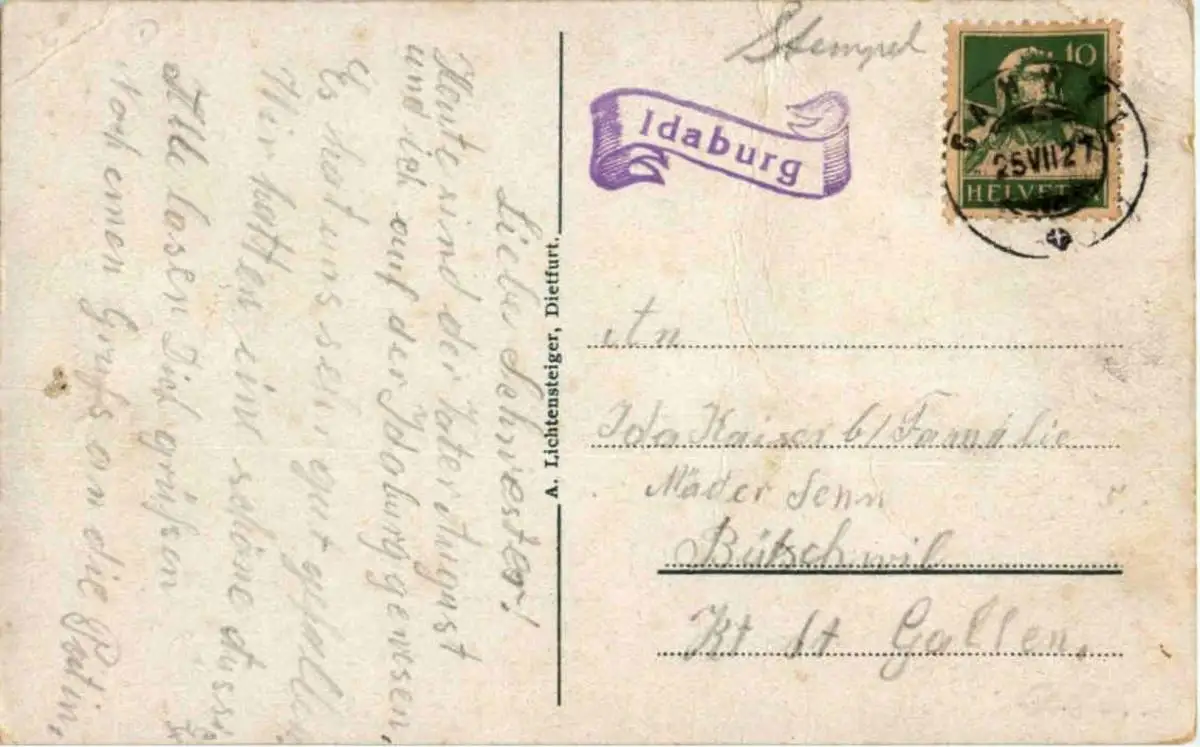 Liebe Schwester!
Heute sind der Vater August
und ich auf der Idaburg gewesen.
Es hat uns ser gut gefallen
Wir hatten eine schöne
Alle lasen Dich grüßen
Noch einen Gruß an die Patin.
A. Lichtensteiger, Dietfurt.
Stempel
Idaburg
10
HELVETIA
25 VII 27
An
Ida Kaiser b/ Famielie
Mäder Senn
Bütschwil
Kt St Gallen.